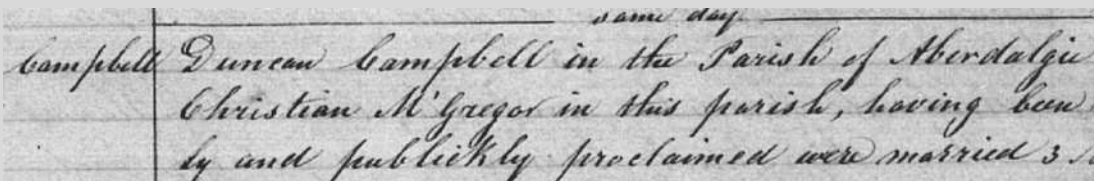 same day
Campbell Duncan Campbell in the Parish of Aberdalgie
Christian McGregor in this parish, having been
ly and publickly proclaimed were married 3